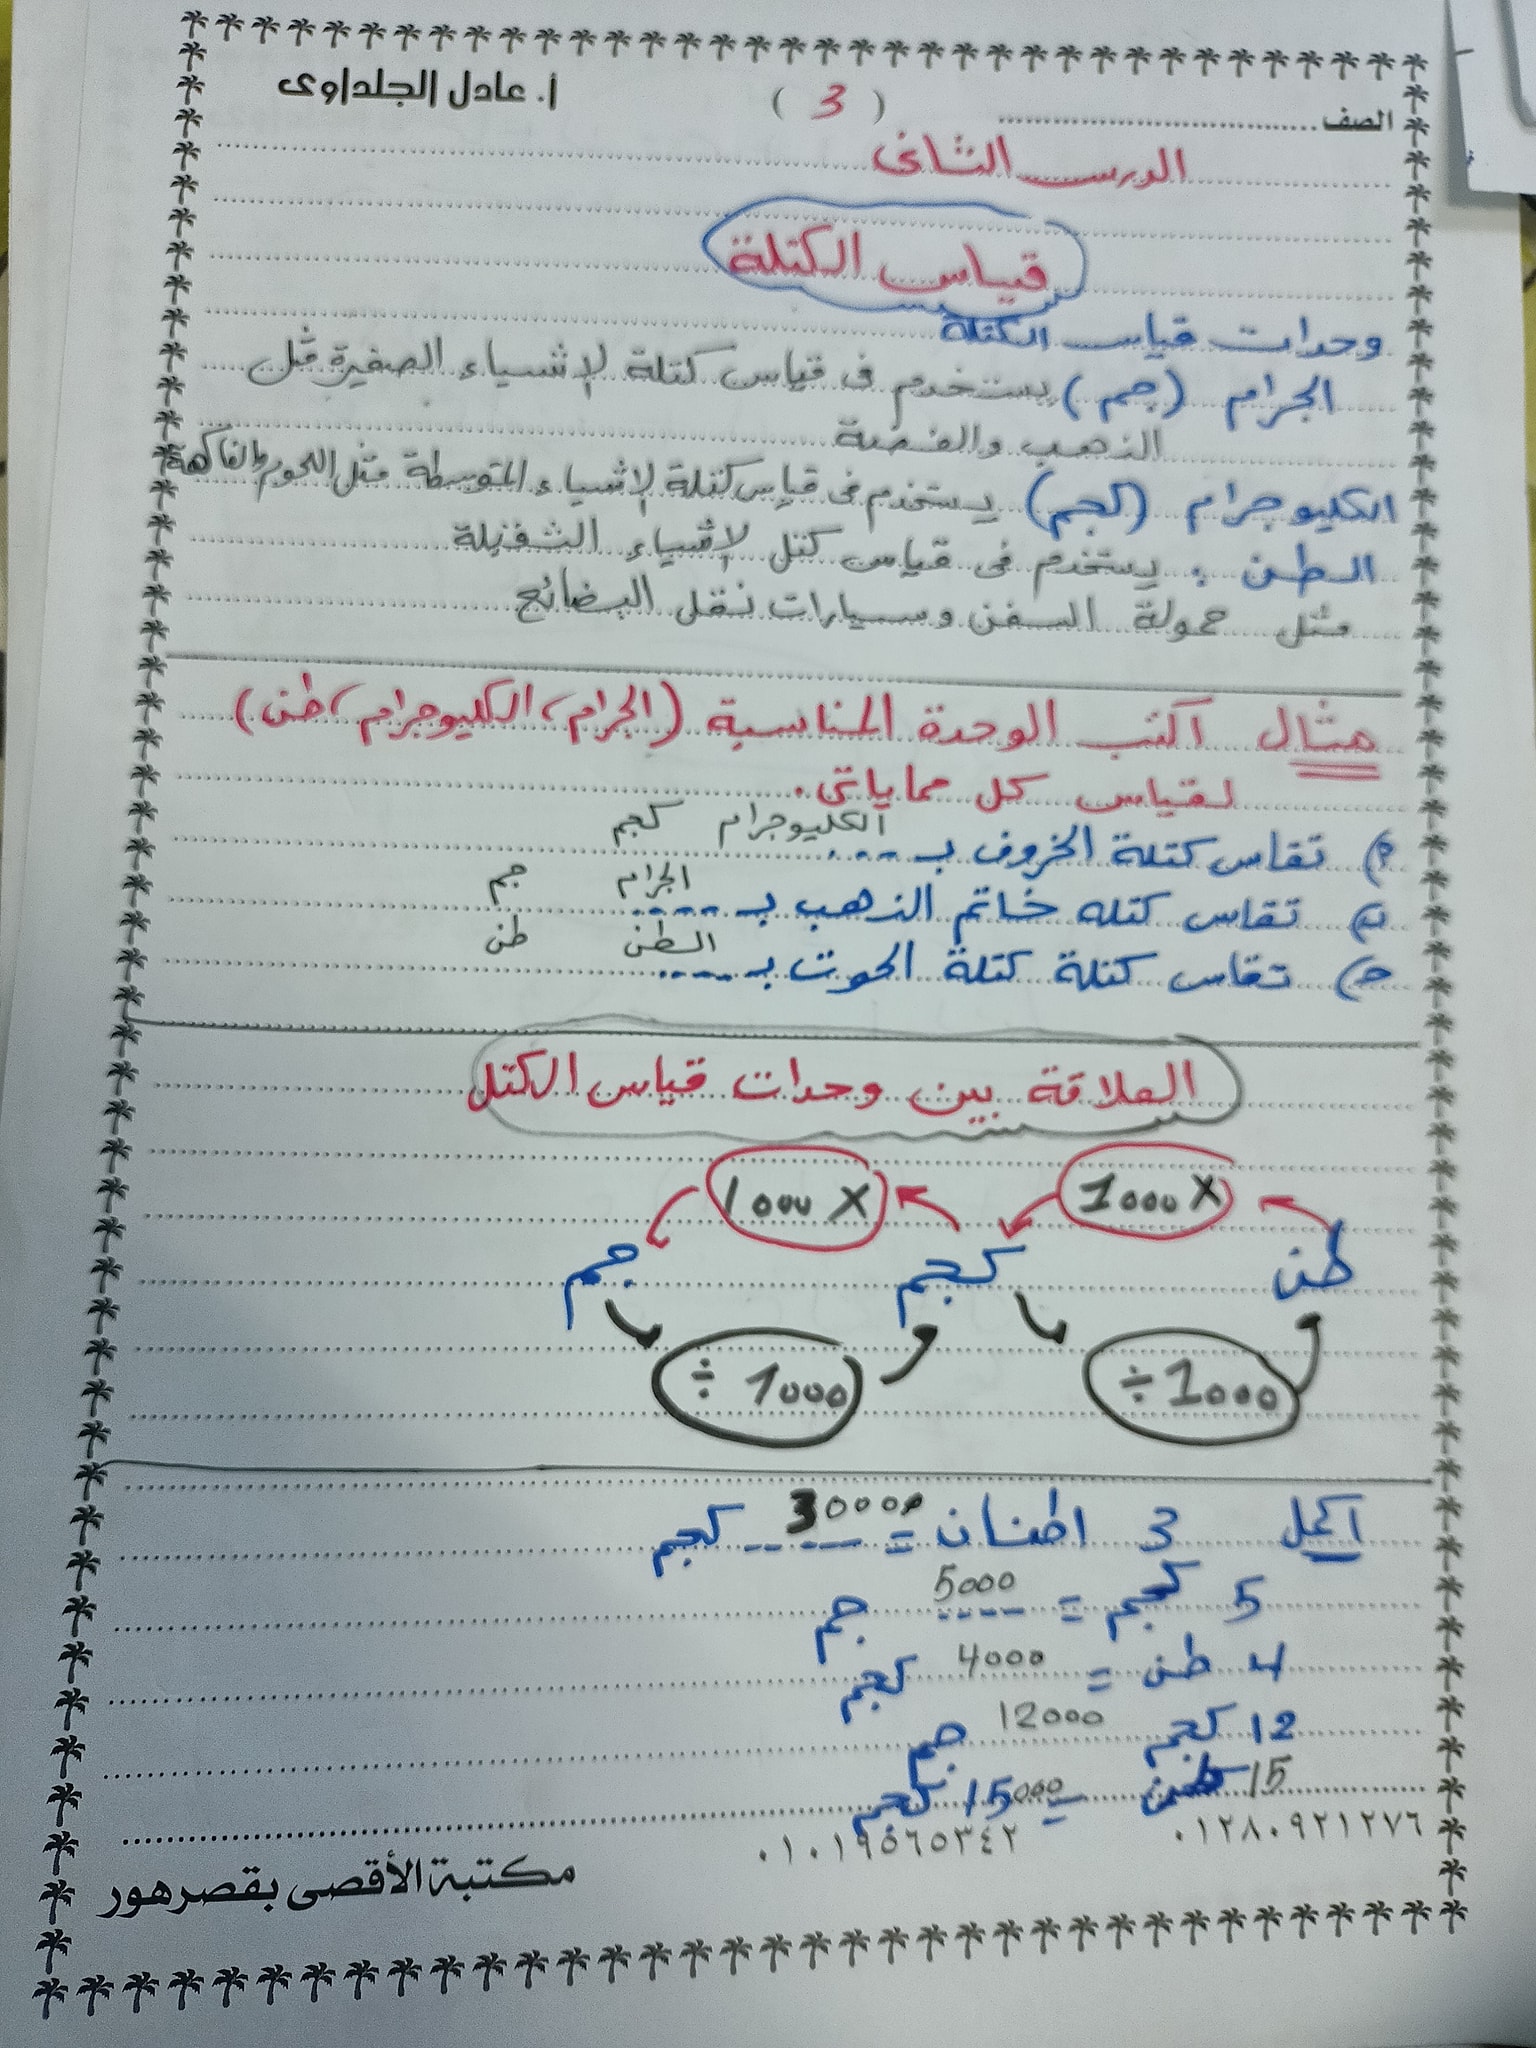 الصف ........ ( 3 ) أ. عادل الجلداوى
الدرس الثانى
قياس الكتلة
وحدات قياس الكتلة
الجرام (جم) يستخدم فى قياس كتلة لإشياء الصغيرة مثل
الذهب والفضة
الكليوجرام (كجم) يستخدم فى قياس كتلة لإشياء المتوسطة مثل اللحوم والفاكهة
الطن : يستخدم فى قياس كتل لإشياء الثقيلة
مثل حمولة السفن وسيارات نقل البضائع
مثال اكتب الوحدة المناسبة (الجرام، الكليوجرام، طن)
لقياس كل مما ياتى.
م) تقاس كتلة الخروف بـ ---- الكليوجرام كجم
ب) تقاس كتله خاتم الذهب بـ ---- الجرام جم
حـ) تقاس كتلة كتلة الحوت بـ ---- الطن طن
العلاقة بين وحدات قياس الكتل
1000 X 1000 X
طن كجم جم
÷ 1000 ÷ 1000
اكمل 3 اطنان = 30000 كجم
5 كجم = 5000 جم
4 طن = 4000 كجم
12 كجم 12000 جم
15 طن = 15000 كجم
٠١٢٨٠٩٢١٢٧٦ ٠١٠١٩٥٦٥٣٤٢
مكتبة الأقصى بقصرهور